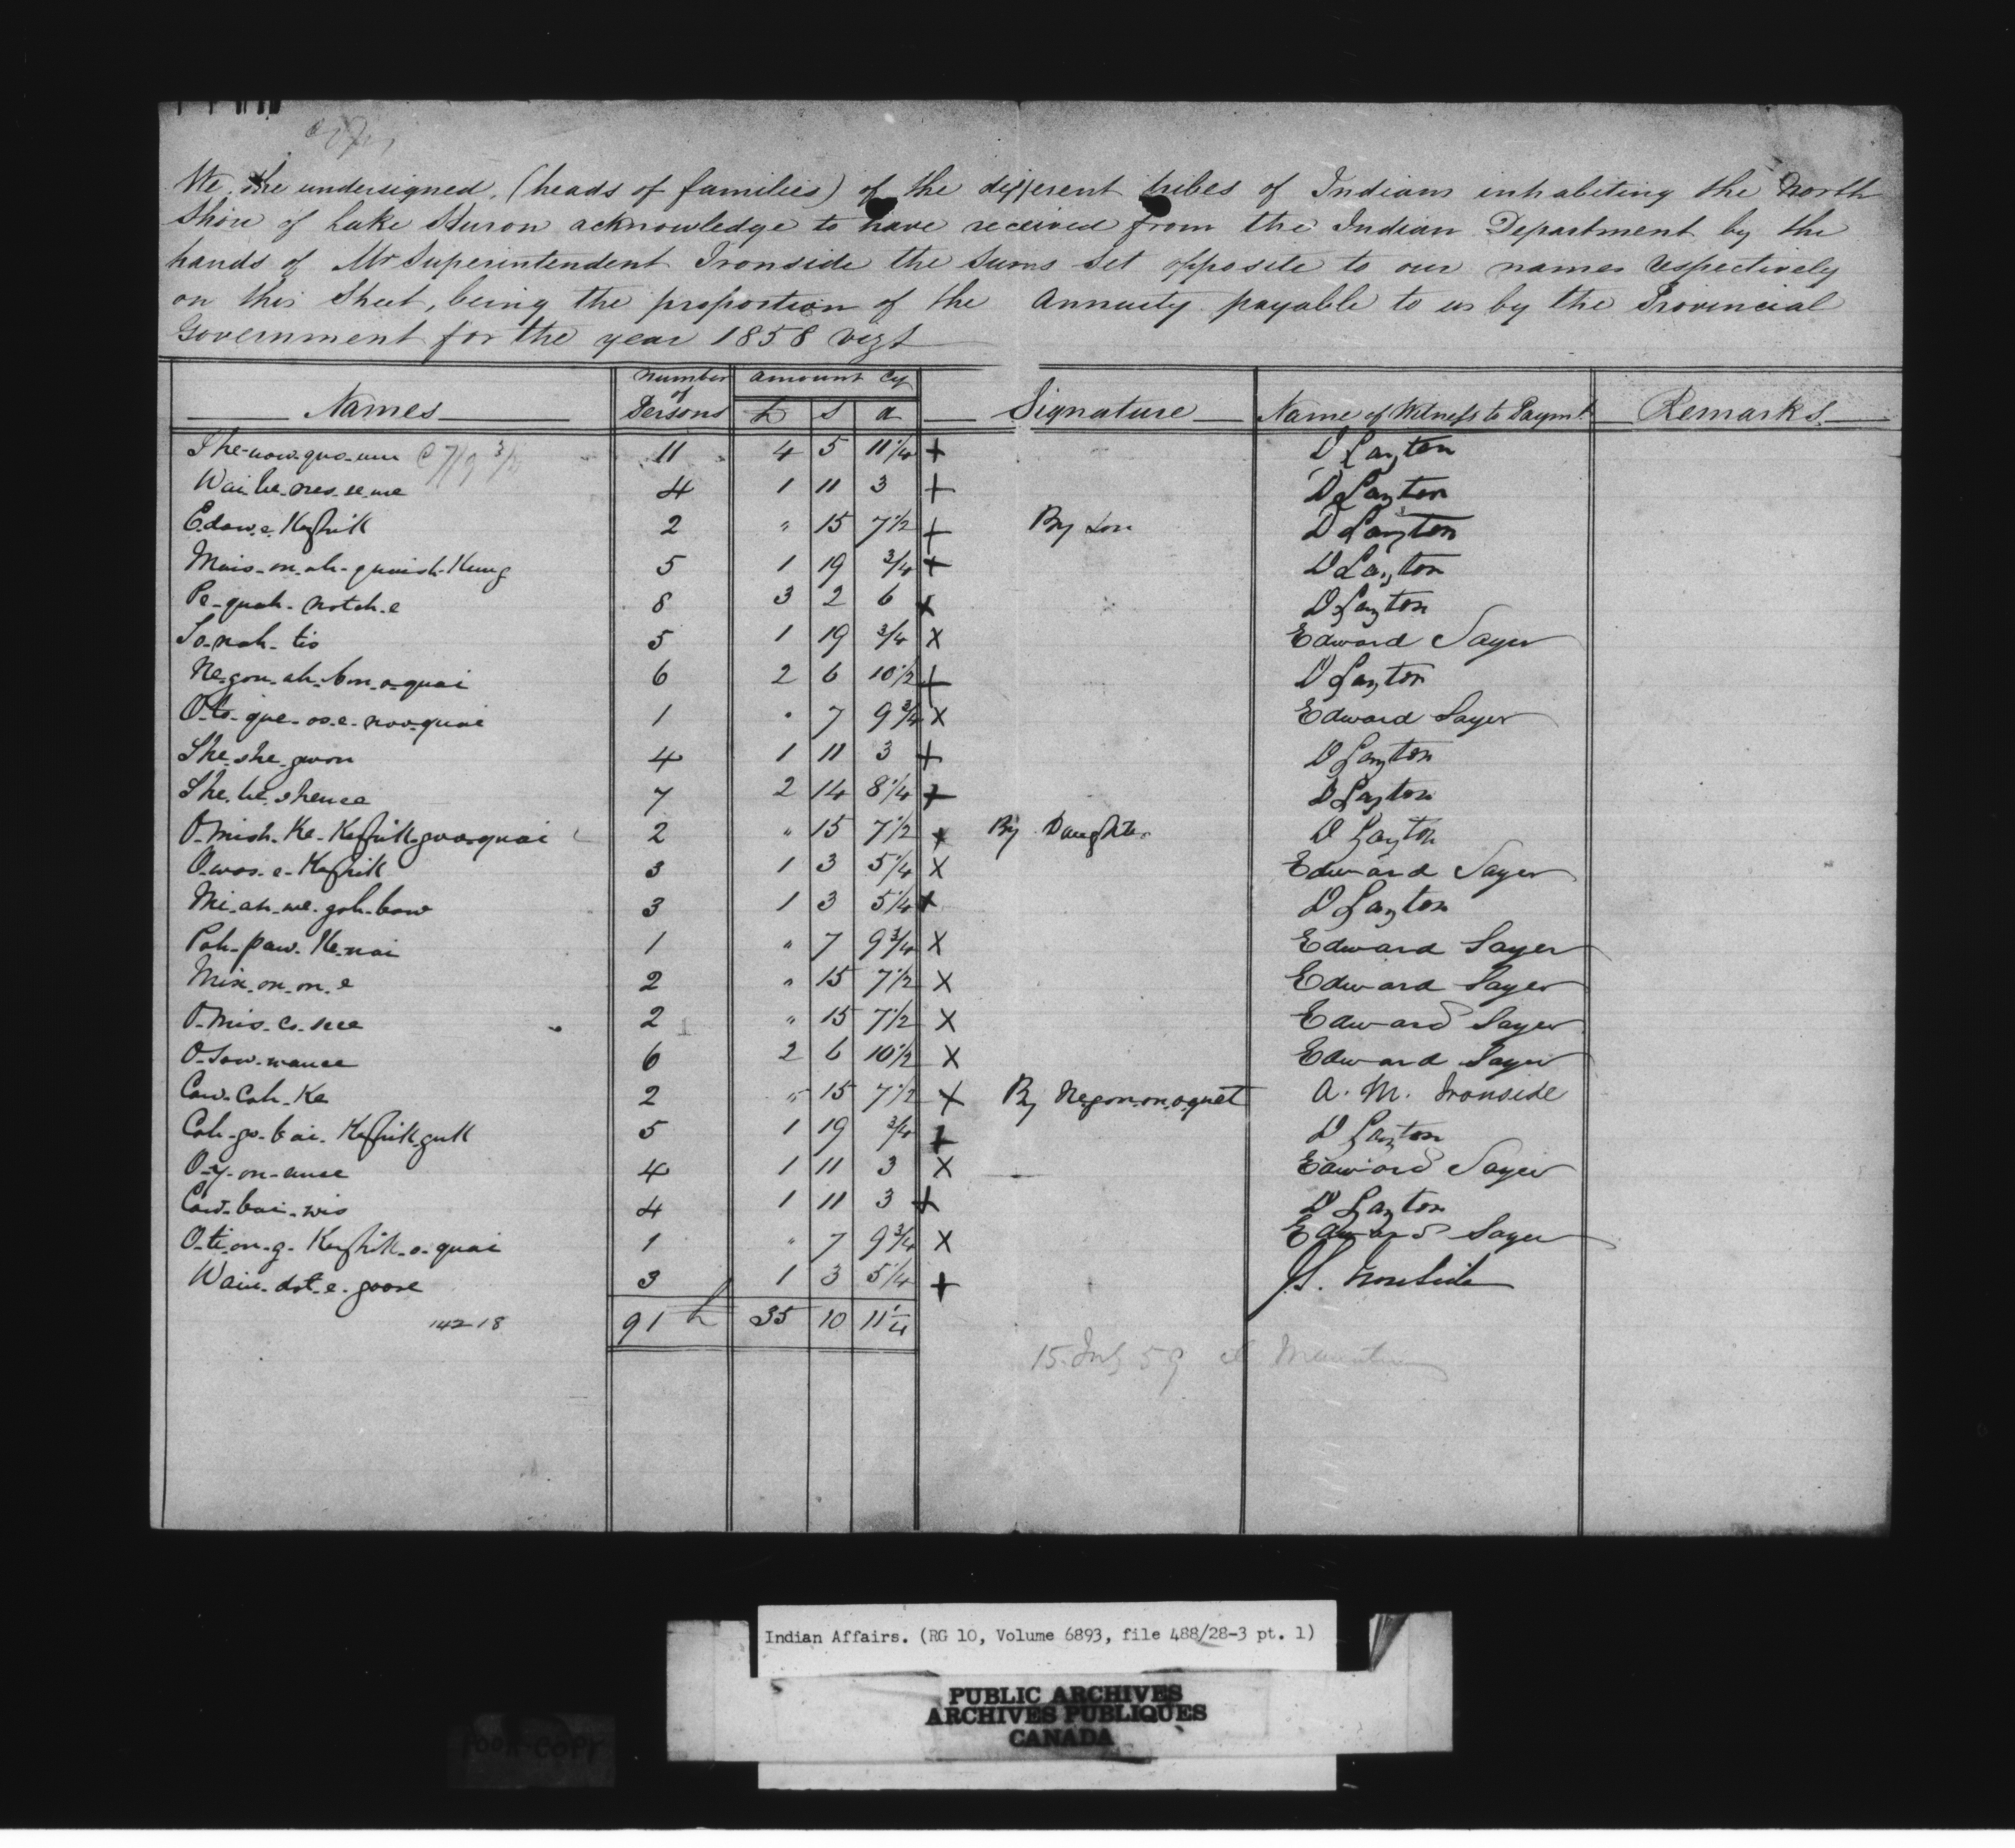 We, the undersigned, (heads of families) of the different tribes of Indians inhabiting the North
Shore of Lake Huron acknowledge to have received from the Indian Department by the
hands of Mr Superintendent Ironside the sums set opposite to our names respectively
on this Sheet, being the proportion of the Annuity payable to us by the Provincial
Government for the year 1858 vizt
Names Number of Persons Amount Cy £ s d Signature Name of Witness to Paymt Remarks
She-now-quo-um @ 7/9 3/4 11 4 5 11 1/4 + D Layton
Wai-be-nes-se-me 4 1 11 3 + D Layton
Edaw-e-Keshik 2 " 15 7 1/2 + By Son D Layton
Mais-on-ah-quaish-Kung 5 1 19 3/4 + D Layton
Pe-quah-notch-e 8 3 2 6 x D Layton
So-nah-tis 5 1 19 3/4 X Edward Sayer
Ne-gon-ah-bm-o-quai 6 2 6 10 1/2 + D Layton
O-to-que-os-e-noo-quai 1 " 7 9 3/4 X Edward Sayer
She-she-gwon 4 1 11 3 + D Layton
She-be-shence 7 2 14 8 1/4 + D Layton
O-mish-Ke-Keshik-gwo-quai 2 " 15 7 1/2 x By Daughter D Layton
O-wos-e-Keshik 3 1 3 5 1/4 X Edward Sayer
Mi-ah-we-goh-bow 3 1 3 5 1/4 x D Layton
Pah-paw-Ke-nai 1 " 7 9 3/4 X Edward Sayer
Mix-on-on-e 2 " 15 7 1/2 X Edward Sayer
O-mis-co-see 2 " 15 7 1/2 X Edward Sayer
O-saw-wance 6 2 6 10 1/2 X Edward Sayer
Caw-Cah-Ke 2 " 15 7 1/2 X By Negon-on-o-quet A. M. Ironside
Cah-go-bai-Keshik-guk 5 1 19 3/4 + D Layton
O-y-on-ance 4 1 11 3 X Edward Sayer
Caw-bai-wis 4 1 11 3 + D Layton
O-ti-on-g-Keshik-o-quai 1 " 7 9 3/4 X Edward Sayer
Wain-dot-e-goose 3 1 3 5 1/4 + Ironside
142-18 91 £ 35 10 11 1/4
15 July 59 at
Indian Affairs. (RG 10, Volume 6893, file 488/28-3 pt. 1)
PUBLIC ARCHIVES
ARCHIVES PUBLIQUES
CANADA
POOR COPY